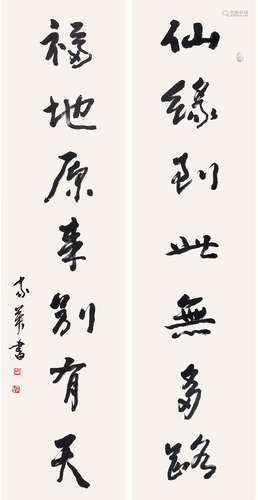 仙緣到此無多路
福地原來别有天
書